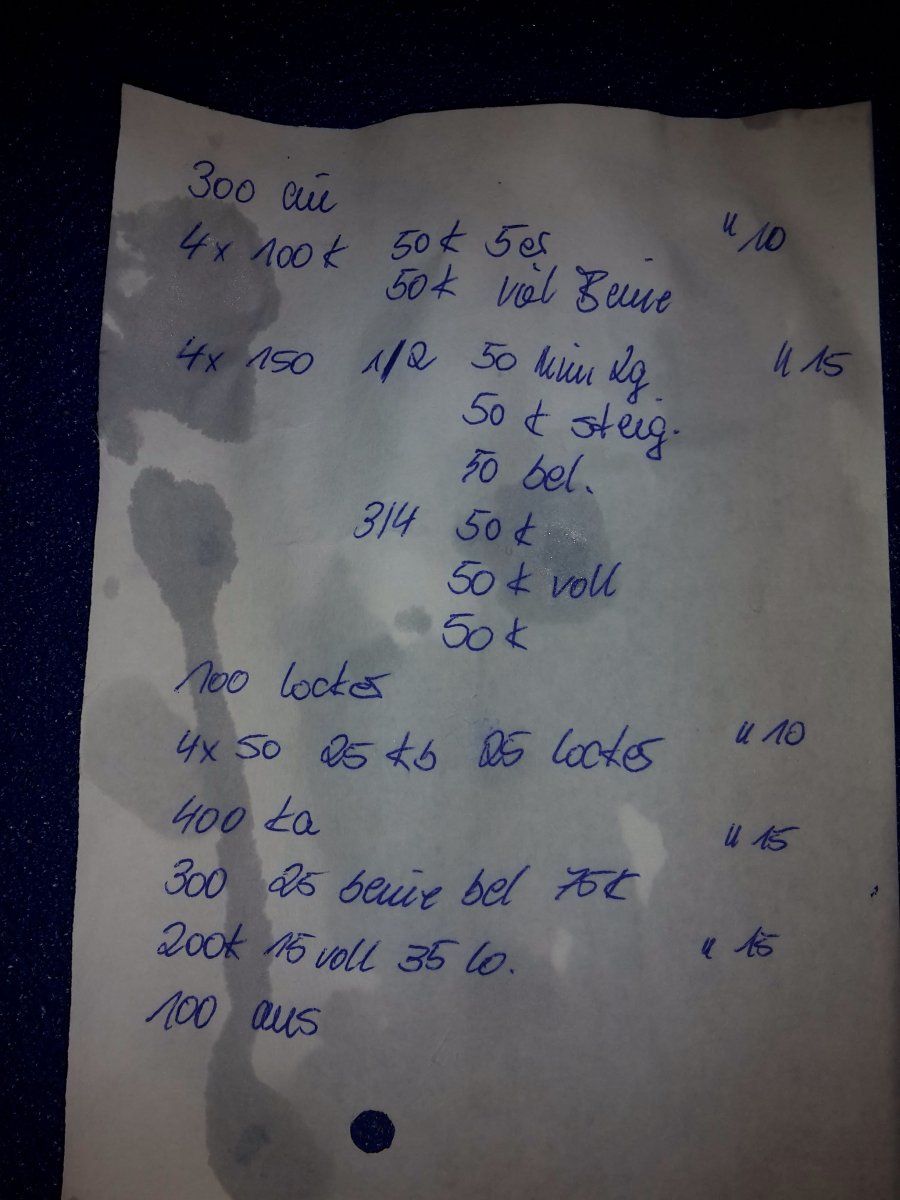 300 ein
4x 100 k 50 k 5er " 10
50 k viel Beine
4x 150 1/2 50 min Zg. " 15
50 k steig.
50 bel.
3/4 50 k
50 k voll
50 k
100 locker
4x 50 25 kb 25 locker " 10
400 ka " 15
300 25 beine bel 75k
200k 15 voll 35 lo. " 15
100 aus